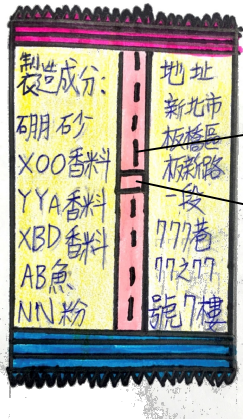 製造成分:
硼砂
XOO香料
YYA香料
XBD香料
AB魚
NN粉
地址
新北市
板橋區
板新路
一段
777巷
77之77
號7樓